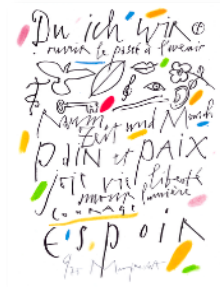 Du ich wir
ouvrir le passé à l'avenir
Raum Zeit und Mensch
pain et paix
joie vie liberté
amour lumière
courage
Espoir